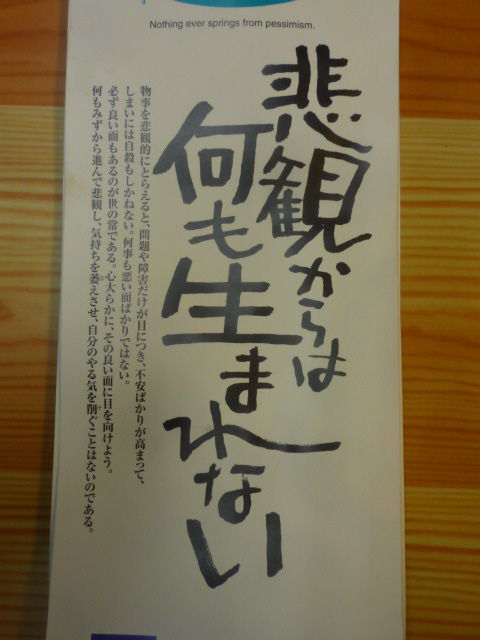 Nothing ever springs from pessimism.
悲観からは
何も生まれない
物事を悲観的にとらえると、問題や障害だけが目につき、不安ばかりが高まって、
しまいには自殺もしかねない。何事も悪い面ばかりではない。
必ず良い面もあるのが世の常である。心大らかに、その良い面に目を向けよう。
何もみずから進んで悲観し、気持ちを萎えさせ、自分のやる気を削ぐことはないのである。